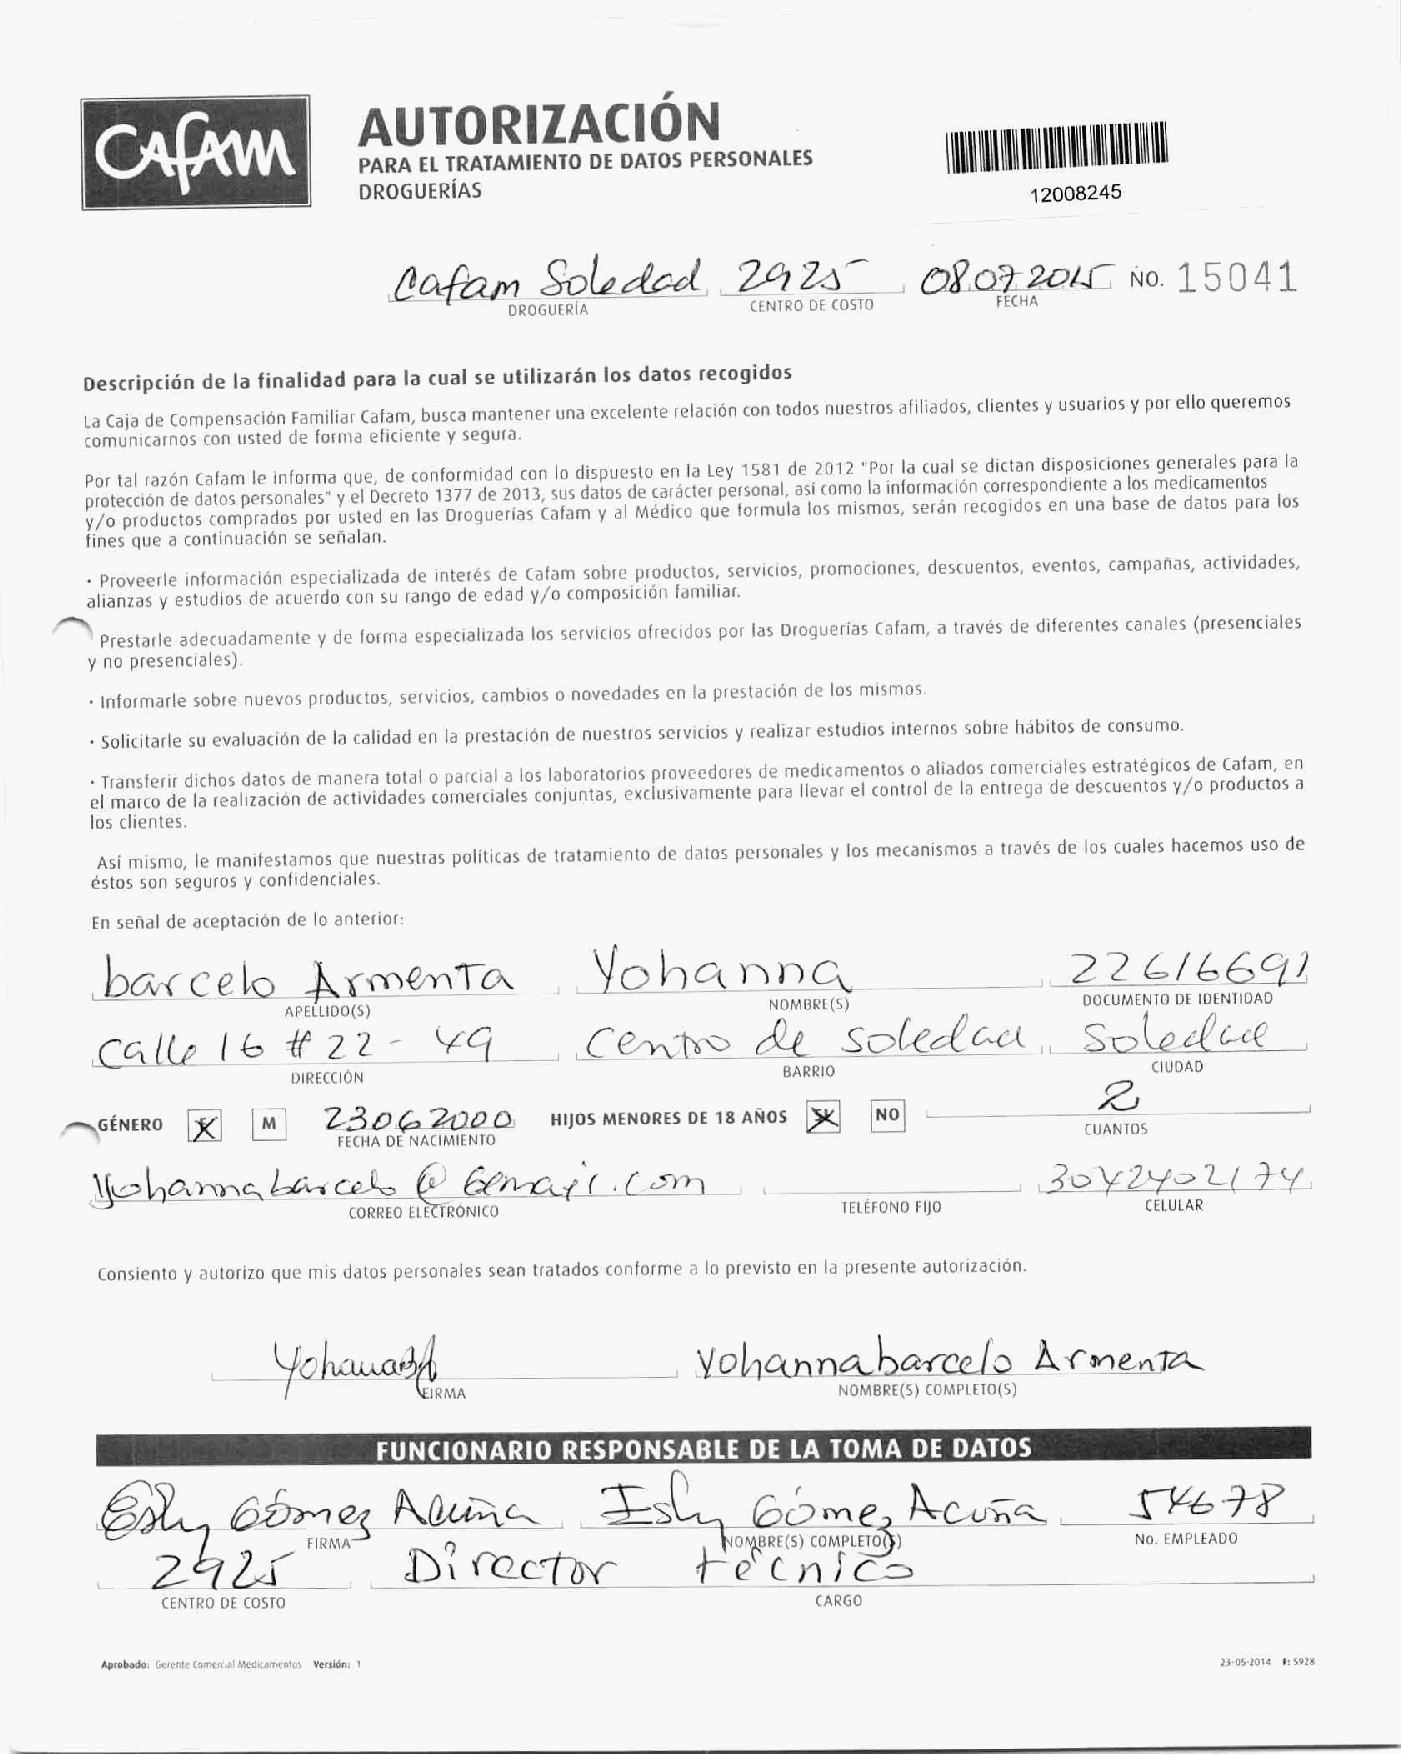 CAFAM
AUTORIZACIÓN
PARA EL TRATAMIENTO DE DATOS PERSONALES
DROGUERÍAS
12008245
Cafam Soledad 2925 08.07.2015 NO. 15041
DROGUERÍA CENTRO DE COSTO FECHA
Descripción de la finalidad para la cual se utilizarán los datos recogidos
La Caja de Compensación Familiar Cafam, busca mantener una excelente relación con todos nuestros afiliados, clientes y usuarios y por ello queremos
comunicarnos con usted de forma eficiente y segura.
Por tal razón Cafam le informa que, de conformidad con lo dispuesto en la Ley 1581 de 2012 "Por la cual se dictan disposiciones generales para la
protección de datos personales" y el Decreto 1377 de 2013, sus datos de carácter personal, así como la información correspondiente a los medicamentos
y/o productos comprados por usted en las Droguerías Cafam y al Médico que formula los mismos, serán recogidos en una base de datos para los
fines que a continuación se señalan.
· Proveerle información especializada de interés de Cafam sobre productos, servicios, promociones, descuentos, eventos, campañas, actividades,
alianzas y estudios de acuerdo con su rango de edad y/o composición familiar.
Prestarle adecuadamente y de forma especializada los servicios ofrecidos por las Droguerías Cafam, a través de diferentes canales (presenciales
y no presenciales).
· Informarle sobre nuevos productos, servicios, cambios o novedades en la prestación de los mismos.
· Solicitarle su evaluación de la calidad en la prestación de nuestros servicios y realizar estudios internos sobre hábitos de consumo.
· Transferir dichos datos de manera total o parcial a los laboratorios proveedores de medicamentos o aliados comerciales estratégicos de Cafam, en
el marco de la realización de actividades comerciales conjuntas, exclusivamente para llevar el control de la entrega de descuentos y/o productos a
los clientes.
Así mismo, le manifestamos que nuestras políticas de tratamiento de datos personales y los mecanismos a través de los cuales hacemos uso de
éstos son seguros y confidenciales.
En señal de aceptación de lo anterior:
barcelo Armenta Yohanna 22616691
APELLIDO(S) NOMBRE(S) DOCUMENTO DE IDENTIDAD
calle 16 # 22 - 49 centro de soledad Soledad
DIRECCIÓN BARRIO CIUDAD
GÉNERO X M 23062000 HIJOS MENORES DE 18 AÑOS X NO 2
FECHA DE NACIMIENTO CUANTOS
Yohannabarcelo @ Gmail.com 3042402174
CORREO ELECTRÓNICO TELÉFONO FIJO CELULAR
Consiento y autorizo que mis datos personales sean tratados conforme a lo previsto en la presente autorización.
YohannaBA Yohanna barcelo Armenta
FIRMA NOMBRE(S) COMPLETO(S)
FUNCIONARIO RESPONSABLE DE LA TOMA DE DATOS
Esly Gómez Acuña Esly Gómez Acuña 54678
FIRMA NOMBRE(S) COMPLETO(S) No. EMPLEADO
2925 Director técnico
CENTRO DE COSTO CARGO
Aprobado: Gerente Comercial Medicamentos Versión: 1 23-05-2014 F: 5928